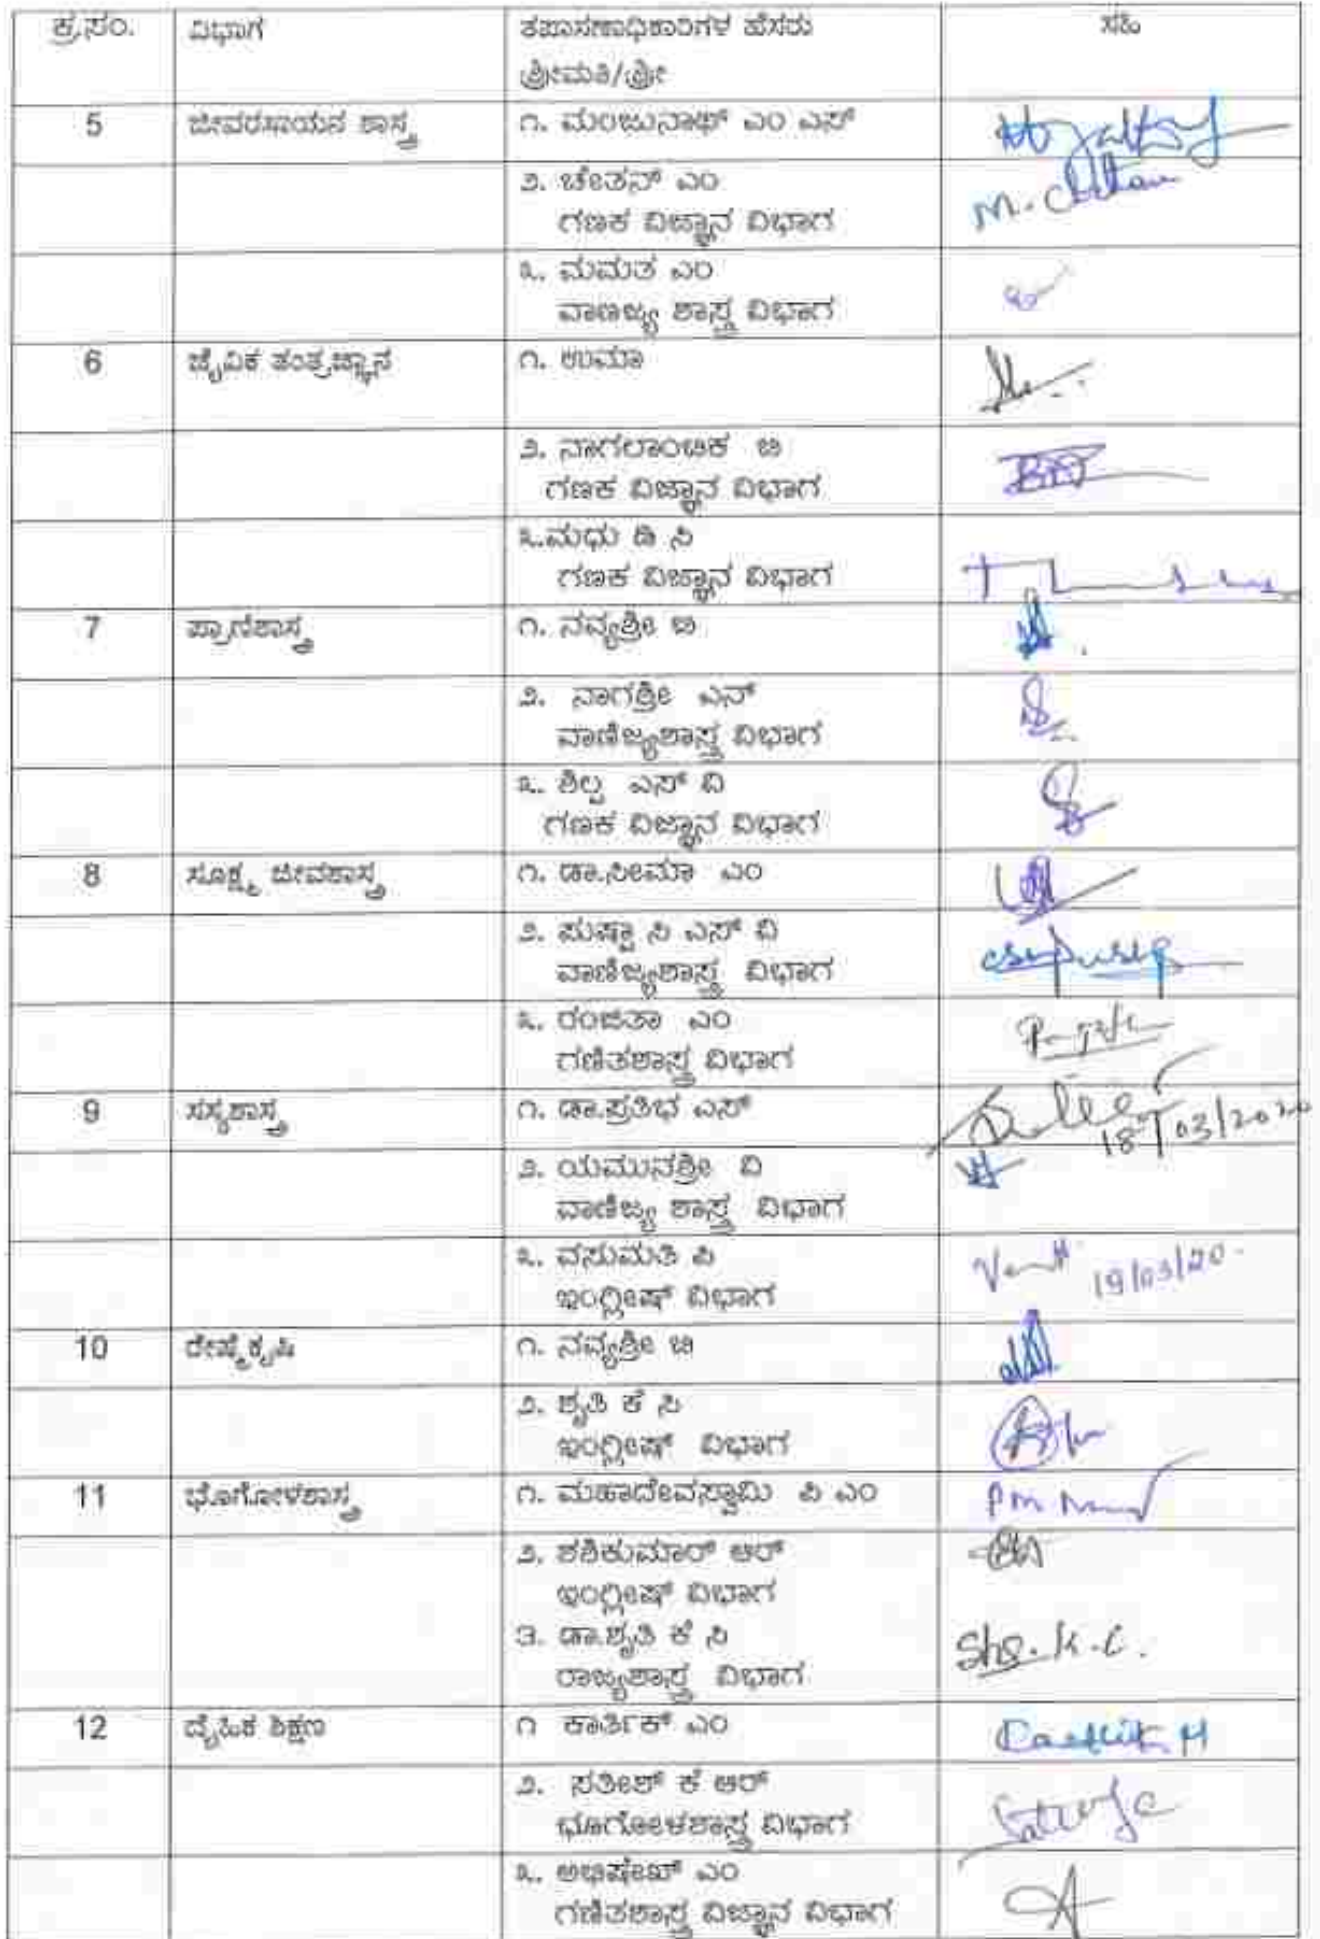 ಕ್ರ.ಸಂ. ವಿಭಾಗ ತಪಾಸಣಾಧಿಕಾರಿಗಳ ಹೆಸರು ಸಹಿ
ಶ್ರೀಮತಿ/ಶ್ರೀ
5 ಜೀವರಸಾಯನ ಶಾಸ್ತ್ರ ೧. ಮಂಜುನಾಥ್ ಎಂ ಎಸ್
೨. ಚೇತನ್ ಎಂ M. Chethan
ಗಣಕ ವಿಜ್ಞಾನ ವಿಭಾಗ
೩. ಮಮತ ಎಂ
ವಾಣಜ್ಯ ಶಾಸ್ತ್ರ ವಿಭಾಗ
6 ಜೈವಿಕ ತಂತ್ರಜ್ಞಾನ ೧. ಉಮಾ
೨. ನಾಗಲಾಂಬಿಕ ಜಿ
ಗಣಕ ವಿಜ್ಞಾನ ವಿಭಾಗ
೩.ಮಧು ಡಿ ಸಿ
ಗಣಕ ವಿಜ್ಞಾನ ವಿಭಾಗ
7 ಪ್ರಾಣಿಶಾಸ್ತ್ರ ೧. ನವ್ಯಶ್ರೀ ಜಿ
೨. ನಾಗಶ್ರೀ ಎನ್
ವಾಣಿಜ್ಯಶಾಸ್ತ್ರ ವಿಭಾಗ
೩. ಶಿಲ್ಪ ಎಸ್ ವಿ
ಗಣಕ ವಿಜ್ಞಾನ ವಿಭಾಗ
8 ಸೂಕ್ಷ್ಮ ಜೀವಶಾಸ್ತ್ರ ೧. ಡಾ.ಸೀಮಾ ಎಂ
೨. ಪುಷ್ಪಾ ಸಿ ಎಸ್ ವಿ
ವಾಣಿಜ್ಯಶಾಸ್ತ್ರ ವಿಭಾಗ
೩. ರಂಜಿತಾ ಎಂ
ಗಣಿತಶಾಸ್ತ್ರ ವಿಭಾಗ
9 ಸಸ್ಯಶಾಸ್ತ್ರ ೧. ಡಾ.ಪ್ರತಿಭ ಎಸ್ 18/03/2020
೨. ಯಮುನಶ್ರೀ ವಿ
ವಾಣಿಜ್ಯ ಶಾಸ್ತ್ರ ವಿಭಾಗ
೩. ವಸುಮತಿ ಪಿ 19/03/20
ಇಂಗ್ಲೀಷ್ ವಿಭಾಗ
10 ರೇಷ್ಮೆಕೃಷಿ ೧. ನವ್ಯಶ್ರೀ ಜಿ
೨. ಶೃತಿ ಕೆ ಸಿ
ಇಂಗ್ಲೀಷ್ ವಿಭಾಗ
11 ಭೊಗೋಳಶಾಸ್ತ್ರ ೧. ಮಹಾದೇವಸ್ವಾಮಿ ಪಿ ಎಂ
೨. ಶಶಿಕುಮಾರ್ ಆರ್
ಇಂಗ್ಲೀಷ್ ವಿಭಾಗ
3. ಡಾ.ಶೃತಿ ಕೆ ಸಿ
ರಾಜ್ಯಶಾಸ್ತ್ರ ವಿಭಾಗ
12 ದೈಹಿಕ ಶಿಕ್ಷಣ ೧ ಕಾರ್ತಿಕ್ ಎಂ Karthik M
೨. ಸತೀಶ್ ಕೆ ಆರ್
ಭೂಗೋಳಶಾಸ್ತ್ರ ವಿಭಾಗ
೩. ಅಭಿಷೇಖ್ ಎಂ
ಗಣಿತಶಾಸ್ತ್ರ ವಿಜ್ಞಾನ ವಿಭಾಗ